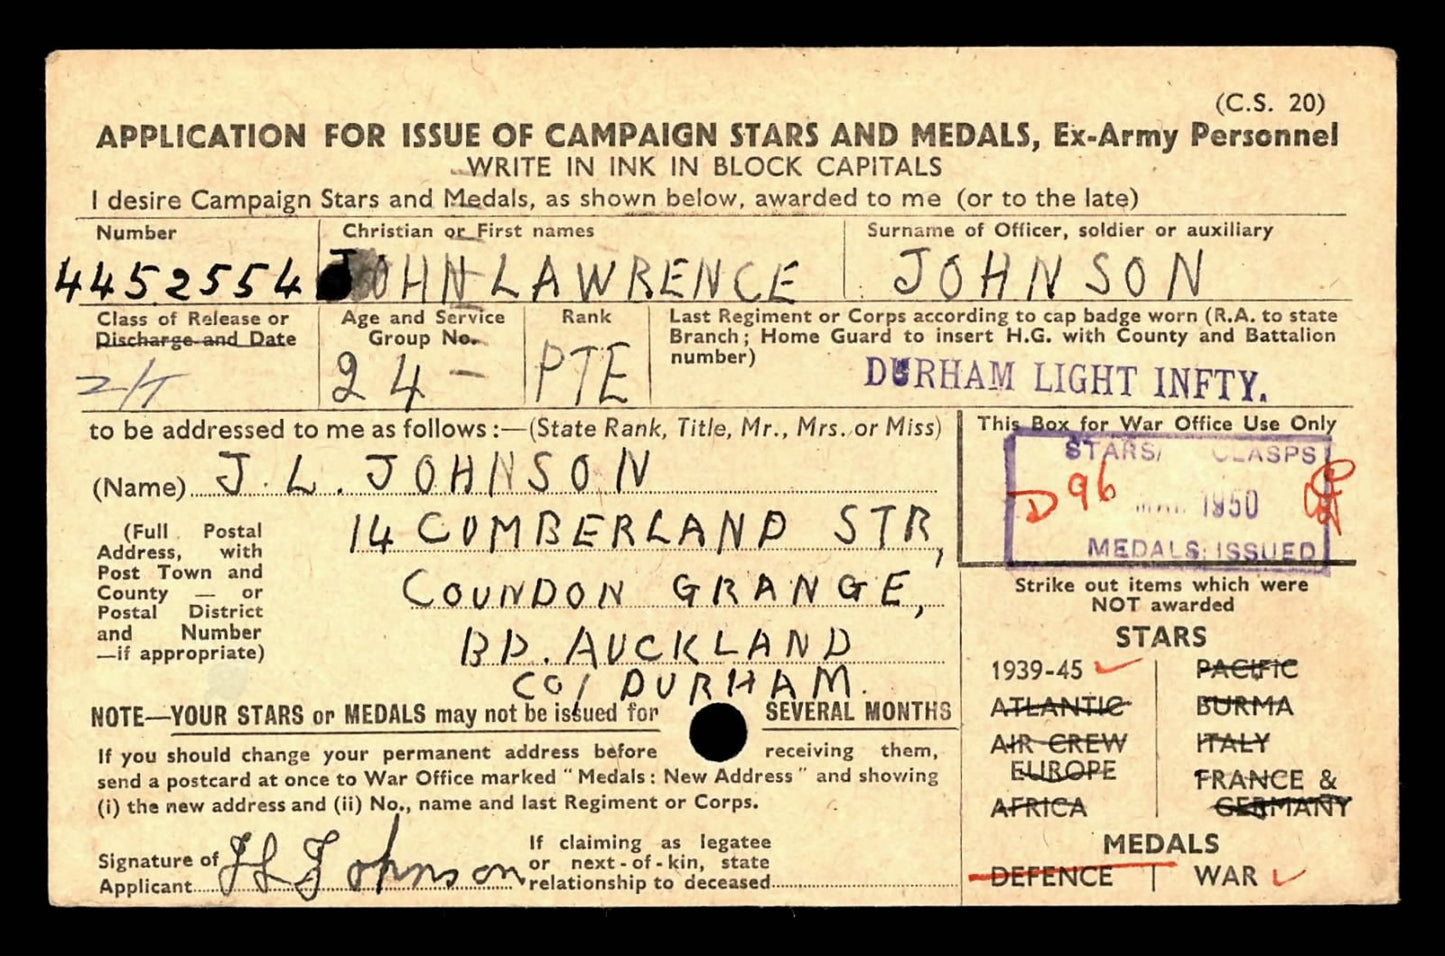 (C.S. 20)
APPLICATION FOR ISSUE OF CAMPAIGN STARS AND MEDALS, Ex-Army Personnel
WRITE IN INK IN BLOCK CAPITALS
I desire Campaign Stars and Medals, as shown below, awarded to me (or to the late)
Number
4452554
Christian or First names
JOHN LAWRENCE
Surname of Officer, soldier or auxiliary
JOHNSON
Class of Release or
Discharge and Date
Age and Service
Group No.
24 -
Rank
PTE
Last Regiment or Corps according to cap badge worn (R.A. to state
Branch; Home Guard to insert H.G. with County and Battalion
number)
DURHAM LIGHT INFTY.
to be addressed to me as follows:—(State Rank, Title, Mr., Mrs. or Miss)
(Name) J. L. JOHNSON
(Full Postal
Address, with
Post Town and
County — or
Postal District
and Number
—if appropriate)
14 CUMBERLAND STR,
COUNDON GRANGE,
BP. AUCKLAND
CO/ DURHAM.
This Box for War Office Use Only
STARS/ CLASPS
D 96
1950
MEDALS ISSUED
NOTE—YOUR STARS or MEDALS may not be issued for SEVERAL MONTHS
If you should change your permanent address before receiving them,
send a postcard at once to War Office marked "Medals: New Address" and showing
(i) the new address and (ii) No., name and last Regiment or Corps.
Signature of
Applicant
J L Johnson
If claiming as legatee
or next-of-kin, state
relationship to deceased
Strike out items which were
NOT awarded
STARS
1939-45
ATLANTIC
AIR CREW
EUROPE
AFRICA
PACIFIC
BURMA
ITALY
FRANCE &
GERMANY
MEDALS
DEFENCE
WAR